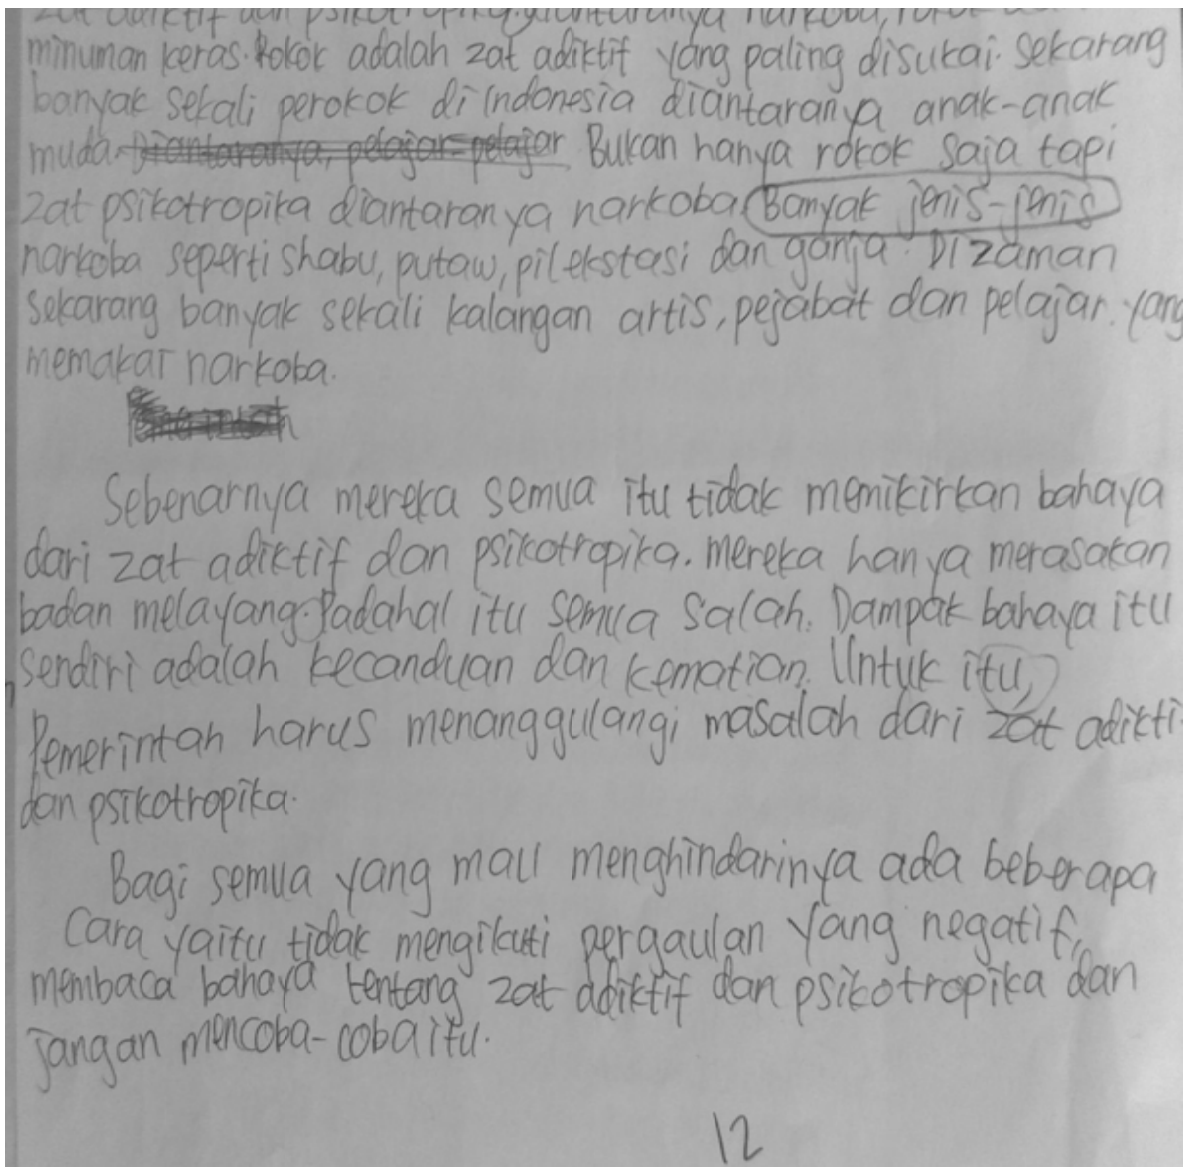 zat adiktif dan psikotropika. diantaranya narkoba, rokok
minuman keras. Rokok adalah zat adiktif yang paling disukai. Sekarang
banyak sekali perokok di Indonesia diantaranya anak-anak
muda. Diantaranya, pelajar-pelajar Bukan hanya rokok saja tapi
zat psikotropika diantaranya narkoba. Banyak jenis-jenis
narkoba seperti shabu, putaw, pil ekstasi dan ganja. Di zaman
sekarang banyak sekali kalangan artis, pejabat dan pelajar. yang
memakai narkoba.
Sebenarnya mereka semua itu tidak memikirkan bahaya
dari zat adiktif dan psikotropika. mereka hanya merasakan
badan melayang. Padahal itu semua salah. Dampak bahaya itu
sendiri adalah kecanduan dan kematian. Untuk itu,
Pemerintah harus menanggulangi masalah dari zat adikti
dan psikotropika.
Bagi semua yang mau menghindarinya ada beberapa
Cara yaitu tidak mengikuti pergaulan yang negatif,
membaca bahaya tentang zat adiktif dan psikotropika dan
jangan mencoba-coba itu.
12